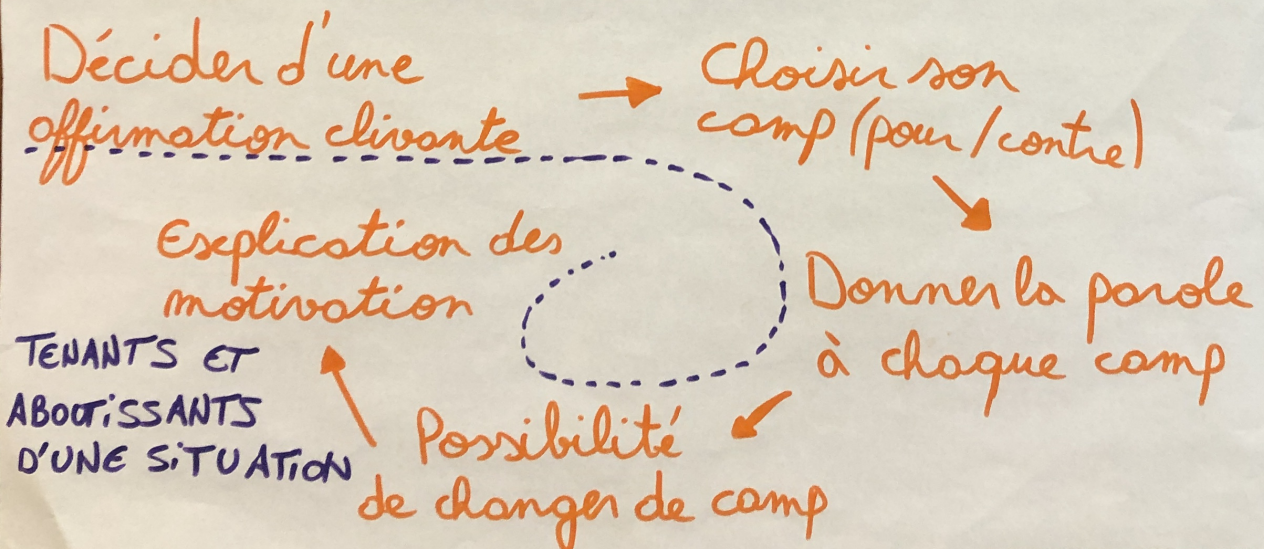 Décider d'une
affirmation clivante
Choisir son
camp (pour/contre)
Donner la parole
à chaque camp
Possibilité
de changer de camp
Explication des
motivation
TENANTS ET
ABOUTISSANTS
D'UNE SITUATION